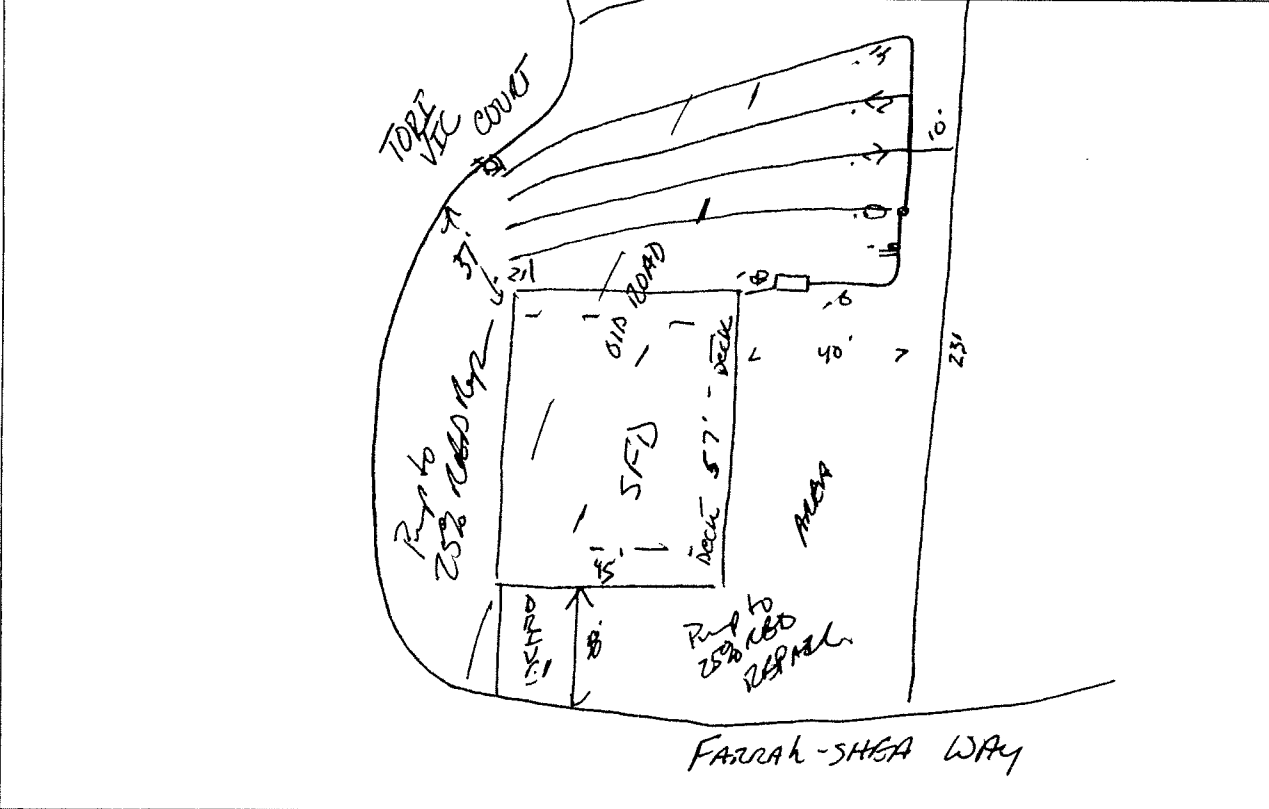 TORI
VIC COURT
10'
37'
21'
OLD ROAD
DECK
40'
231
Pump to
25% RED Rep
SFD
57'
DECK
AREA
45'
Pump to
25% RED
REPAIR
FARRAH-SHEA WAY